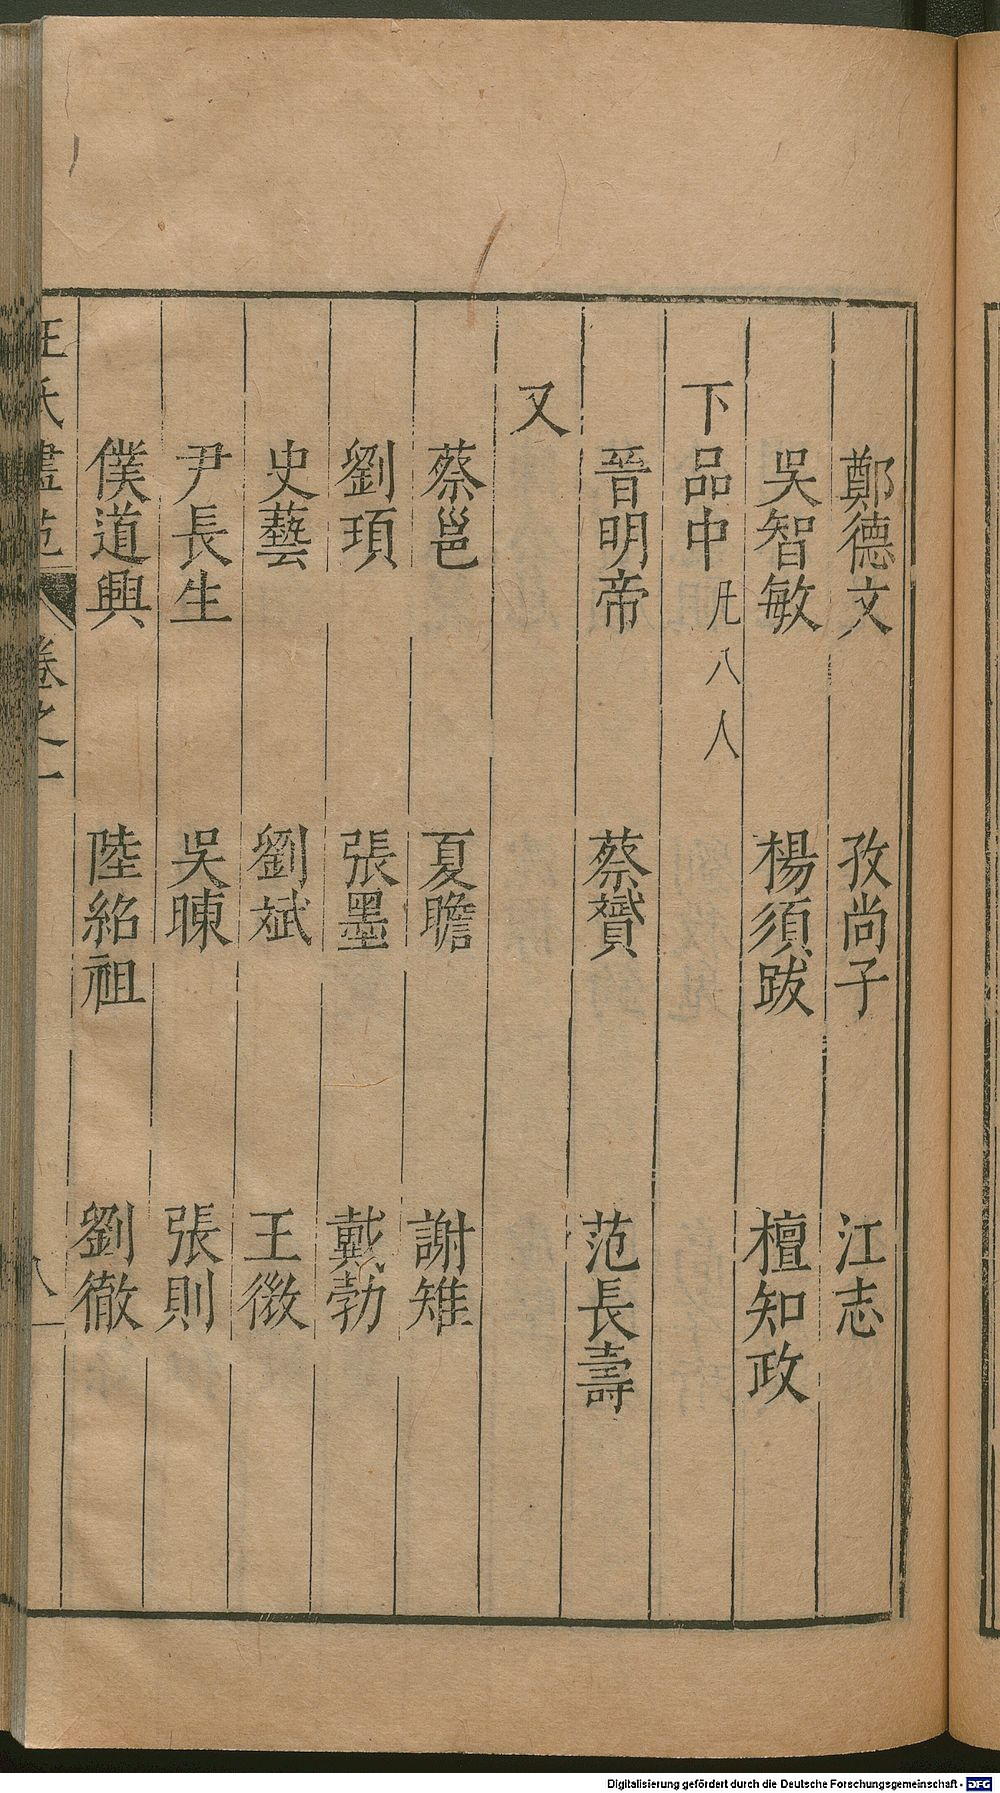 鄭德文　孜尚子　江志
吳智敏　楊須跋　檀知政
下品中凡八人
晉明帝　蔡贇　范長壽
又
蔡邕　夏瞻　謝雉
劉頊　張墨　戴勃
史藝　劉斌　王徴
尹長生　吳暕　張則
僕道興　陸紹祖　劉徹
王氏畫苑　卷之一　八
Digitalisierung gefördert durch die Deutsche Forschungsgemeinschaft - DFG